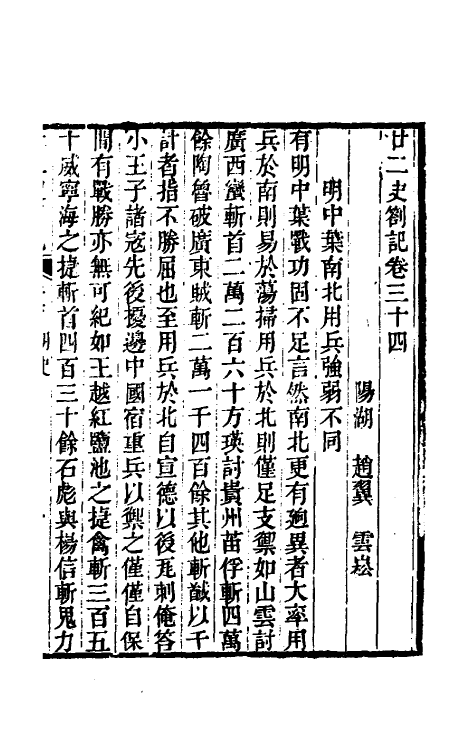 廿二史劄記卷三十四
陽湖 趙翼 雲崧
明中葉南北用兵強弱不同
有明中葉戰功固不足言然南北更有迥異者大率用
兵於南則易於蕩掃用兵於北則僅足支禦如山雲討
廣西蠻斬首二萬二百六十方瑛討貴州苗俘斬四萬
餘陶魯破廣東賊斬二萬一千四百餘其他斬馘以千
計者指不勝屈也至用兵於北自宣德以後瓦剌俺答
小王子諸寇先後擾邊中國宿重兵以禦之僅僅自保
間有戰勝亦無可紀如王越紅鹽池之捷禽斬三百五
十威寧海之捷斬首四百三十餘石彪與楊信斬鬼力
明史